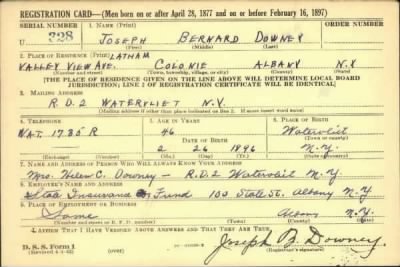 REGISTRATION CARD—(Men born on or after April 28, 1877 and on or before February 16, 1897)
SERIAL NUMBER 1. NAME (Print)
U 328 JOSEPH BERNARD DOWNEY
(First) (Middle) (Last)
2. PLACE OF RESIDENCE (Print) LATHAM
VALLEY VIEW AVE. COLONIE ALBANY N.Y.
(Number and street) (Town, township, village, or city) (County) (State)
[THE PLACE OF RESIDENCE GIVEN ON THE LINE ABOVE WILL DETERMINE LOCAL BOARD
JURISDICTION; LINE 2 OF REGISTRATION CERTIFICATE WILL BE IDENTICAL]
3. MAILING ADDRESS
R.D.2 WATERVLIET N.Y.
[Mailing address if other than place indicated on line 2. If same insert word same]
4. TELEPHONE 5. AGE IN YEARS 6. PLACE OF BIRTH
46 Watervliet
DATE OF BIRTH (Town or county)
WAT. 1735 R 2 26 1896 N.Y.
(Exchange) (Number) (Mo.) (Day) (Yr.) (State or country)
7. NAME AND ADDRESS OF PERSON WHO WILL ALWAYS KNOW YOUR ADDRESS
Mrs. Helen C. Downey - R.D.2 Watervliet N.Y.
8. EMPLOYER'S NAME AND ADDRESS
State Insurance Fund 100 State St. Albany N.Y.
9. PLACE OF EMPLOYMENT OR BUSINESS
Same Albany N.Y.
(Number and street or R. F. D. number) (Town) (County) (State)
I AFFIRM THAT I HAVE VERIFIED ABOVE ANSWERS AND THAT THEY ARE TRUE.
D. S. S. Form 1 Joseph B. Downey
(Revised 4-1-42) (Registrant's signature)